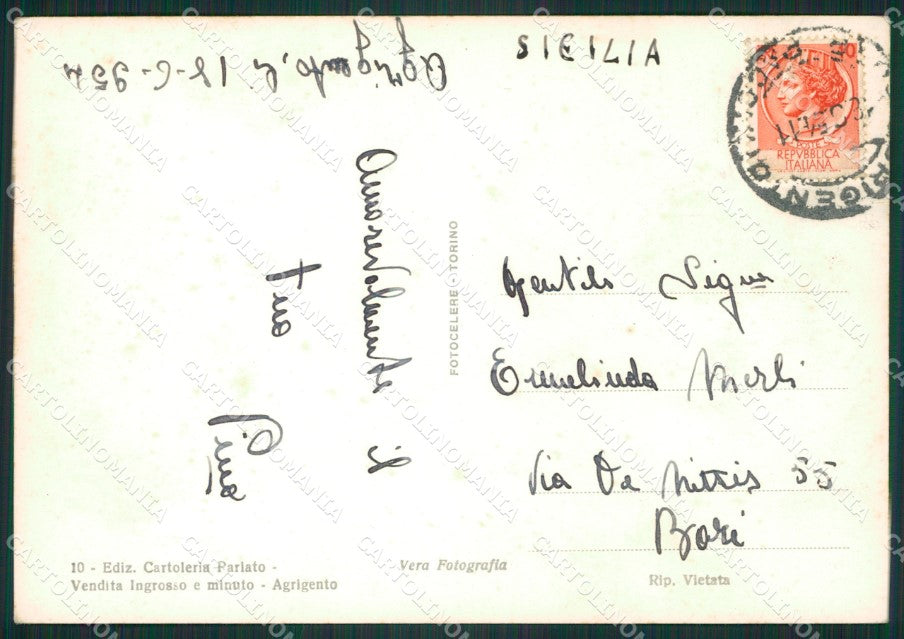 SICILIA
Agrigento, li 18-6-954
Amorevolmente il
tuo
Pino
10
POSTE
REPVBBLICA
ITALIANA
AGRIGENTO
Gentile Sigra
Ermelinda Merli
Via De Nittis 55
Bari
FOTOCELERE - TORINO
10 - Ediz. Cartoleria Parlato -
Vendita Ingrosso e minuto - Agrigento
Vera Fotografia
Rip. Vietata
CARTOLINOMANIA